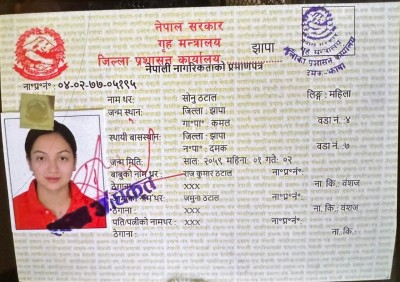 नेपाल सरकार
गृह मन्त्रालय
जिल्ला प्रशासन कार्यालय, झापा
नेपाली नागरिकताको प्रमाणपत्र
ना॰प्र॰नं॰: ०४-०२-७७-०५१९५
नाम थर: सोनु ठटाल लिङ्ग: महिला
जन्म स्थान: जिल्ला: झापा
गा॰पा॰ कमल वडा नं. ४
स्थायी बासस्थान: जिल्ला: झापा
न॰पा: दमक वडा नं. ७
जन्म मिति: साल: २०५९ महिना: ०१ गते: ०२
बाबुको नाम थर: राज कुमार ठटाल ना॰प्र॰नं॰:
ठेगाना: xxx ना. कि.: वंशज
नाम थर: जमुना ठटाल ना॰प्र॰नं॰:
ठेगाना: xxx ना. कि.: वंशज
पति/पत्नीको नामथर: xxx ना॰प्र॰नं॰:
ठेगाना: ना. कि.: